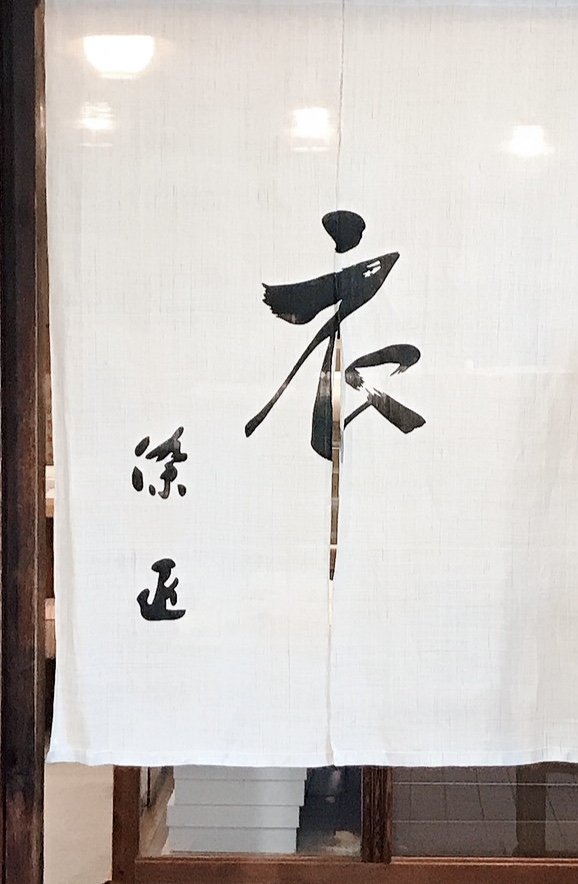 衣
染匠